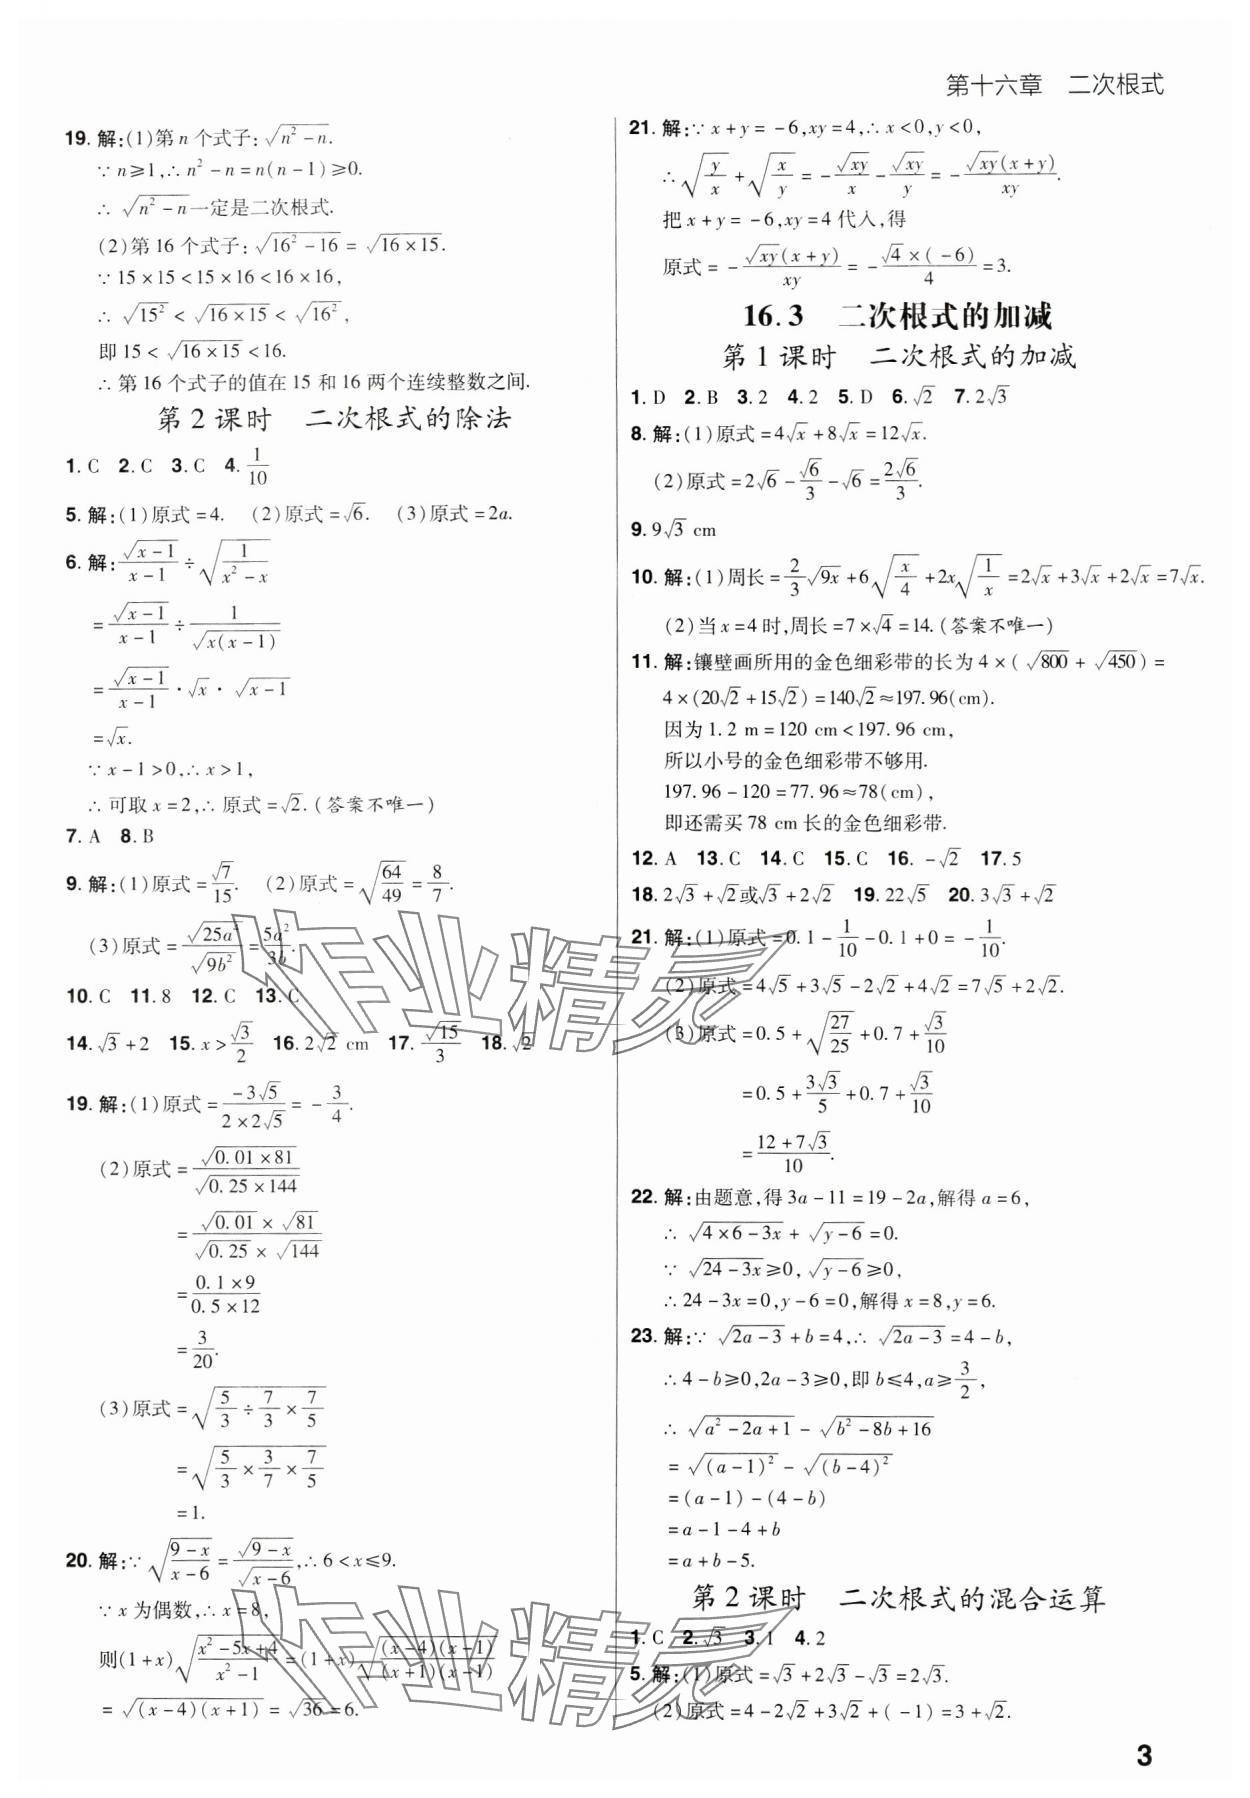 第十六章　二次根式
19. 解:(1)第 n 个式子:√(n²-n).
∵ n≥1,∴ n²-n=n(n-1)≥0.
∴ √(n²-n)一定是二次根式.
(2)第 16 个式子:√(16²-16)=√(16×15).
∵ 15×15<15×16<16×16,
∴ √(15²)<√(16×15)<√(16²),
即 15<√(16×15)<16.
∴ 第 16 个式子的值在 15 和 16 两个连续整数之间.
第 2 课时　二次根式的除法
1. C　2. C　3. C　4. 1/10
5. 解:(1)原式=4.　(2)原式=√6.　(3)原式=2a.
6. 解:√(x-1)/(x-1)÷√(1/(x²-x))
=√(x-1)/(x-1)÷1/√(x(x-1))
=√(x-1)/(x-1)·√x·√(x-1)
=√x.
∵ x-1>0,∴ x>1,
∴ 可取 x=2,∴ 原式=√2.(答案不唯一)
7. A　8. B
9. 解:(1)原式=√7/15.　(2)原式=√(64/49)=8/7.
(3)原式=√(25a⁴)/√(9b²)=5a²/3b.
10. C　11. 8　12. C　13. C
14. √3+2　15. x>√3/2　16. 2√2 cm　17. √15/3　18. √2
19. 解:(1)原式=-3√5/(2×2√5)=-3/4.
(2)原式=√(0.01×81)/√(0.25×144)
=(√0.01×√81)/(√0.25×√144)
=(0.1×9)/(0.5×12)
=3/20.
(3)原式=√(5/3÷7/3×7/5)
=√(5/3×3/7×7/5)
=1.
20. 解:∵ √((9-x)/(x-6))=√(9-x)/√(x-6),∴ 6<x≤9.
∵ x 为偶数,∴ x=8,
则(1+x)√((x²-5x+4)/(x²-1))=(1+x)√((x-4)(x-1)/((x+1)(x-1)))
=√((x-4)(x+1))=√36=6.
21. 解:∵ x+y=-6,xy=4,∴ x<0,y<0,
∴ √(y/x)+√(x/y)=-√(xy)/x-√(xy)/y=-√(xy)(x+y)/xy.
把 x+y=-6,xy=4 代入,得
原式=-√(xy)(x+y)/xy=-√4×(-6)/4=3.
16.3　二次根式的加减
第 1 课时　二次根式的加减
1. D　2. B　3. 2　4. 2　5. D　6. √2　7. 2√3
8. 解:(1)原式=4√x+8√x=12√x.
(2)原式=2√6-√6/3-√6=2√6/3.
9. 9√3 cm
10. 解:(1)周长=2/3√(9x)+6√(x/4)+2x√(1/x)=2√x+3√x+2√x=7√x.
(2)当 x=4 时,周长=7×√4=14.(答案不唯一)
11. 解:镶壁画所用的金色细彩带的长为 4×(√800+√450)=
4×(20√2+15√2)=140√2≈197.96(cm).
因为 1.2 m=120 cm<197.96 cm,
所以小号的金色细彩带不够用.
197.96-120=77.96≈78(cm),
即还需买 78 cm 长的金色细彩带.
12. A　13. C　14. C　15. C　16. -√2　17. 5
18. 2√3+√2或√3+2√2　19. 22√5　20. 3√3+√2
21. 解:(1)原式=0.1-1/10-0.1+0=-1/10.
(2)原式=4√5+3√5-2√2+4√2=7√5+2√2.
(3)原式=0.5+√(27/25)+0.7+√3/10
=0.5+3√3/5+0.7+√3/10
=(12+7√3)/10.
22. 解:由题意,得 3a-11=19-2a,解得 a=6,
∴ √(4×6-3x)+√(y-6)=0.
∵ √(24-3x)≥0,√(y-6)≥0,
∴ 24-3x=0,y-6=0,解得 x=8,y=6.
23. 解:∵ √(2a-3)+b=4,∴ √(2a-3)=4-b,
∴ 4-b≥0,2a-3≥0,即 b≤4,a≥3/2,
∴ √(a²-2a+1)-√(b²-8b+16)
=√((a-1)²)-√((b-4)²)
=(a-1)-(4-b)
=a-1-4+b
=a+b-5.
第 2 课时　二次根式的混合运算
1. C　2. √3　3. 1　4. 2
5. 解:(1)原式=√3+2√3-√3=2√3.
(2)原式=4-2√2+3√2+(-1)=3+√2.
作业精灵
作业精灵
3